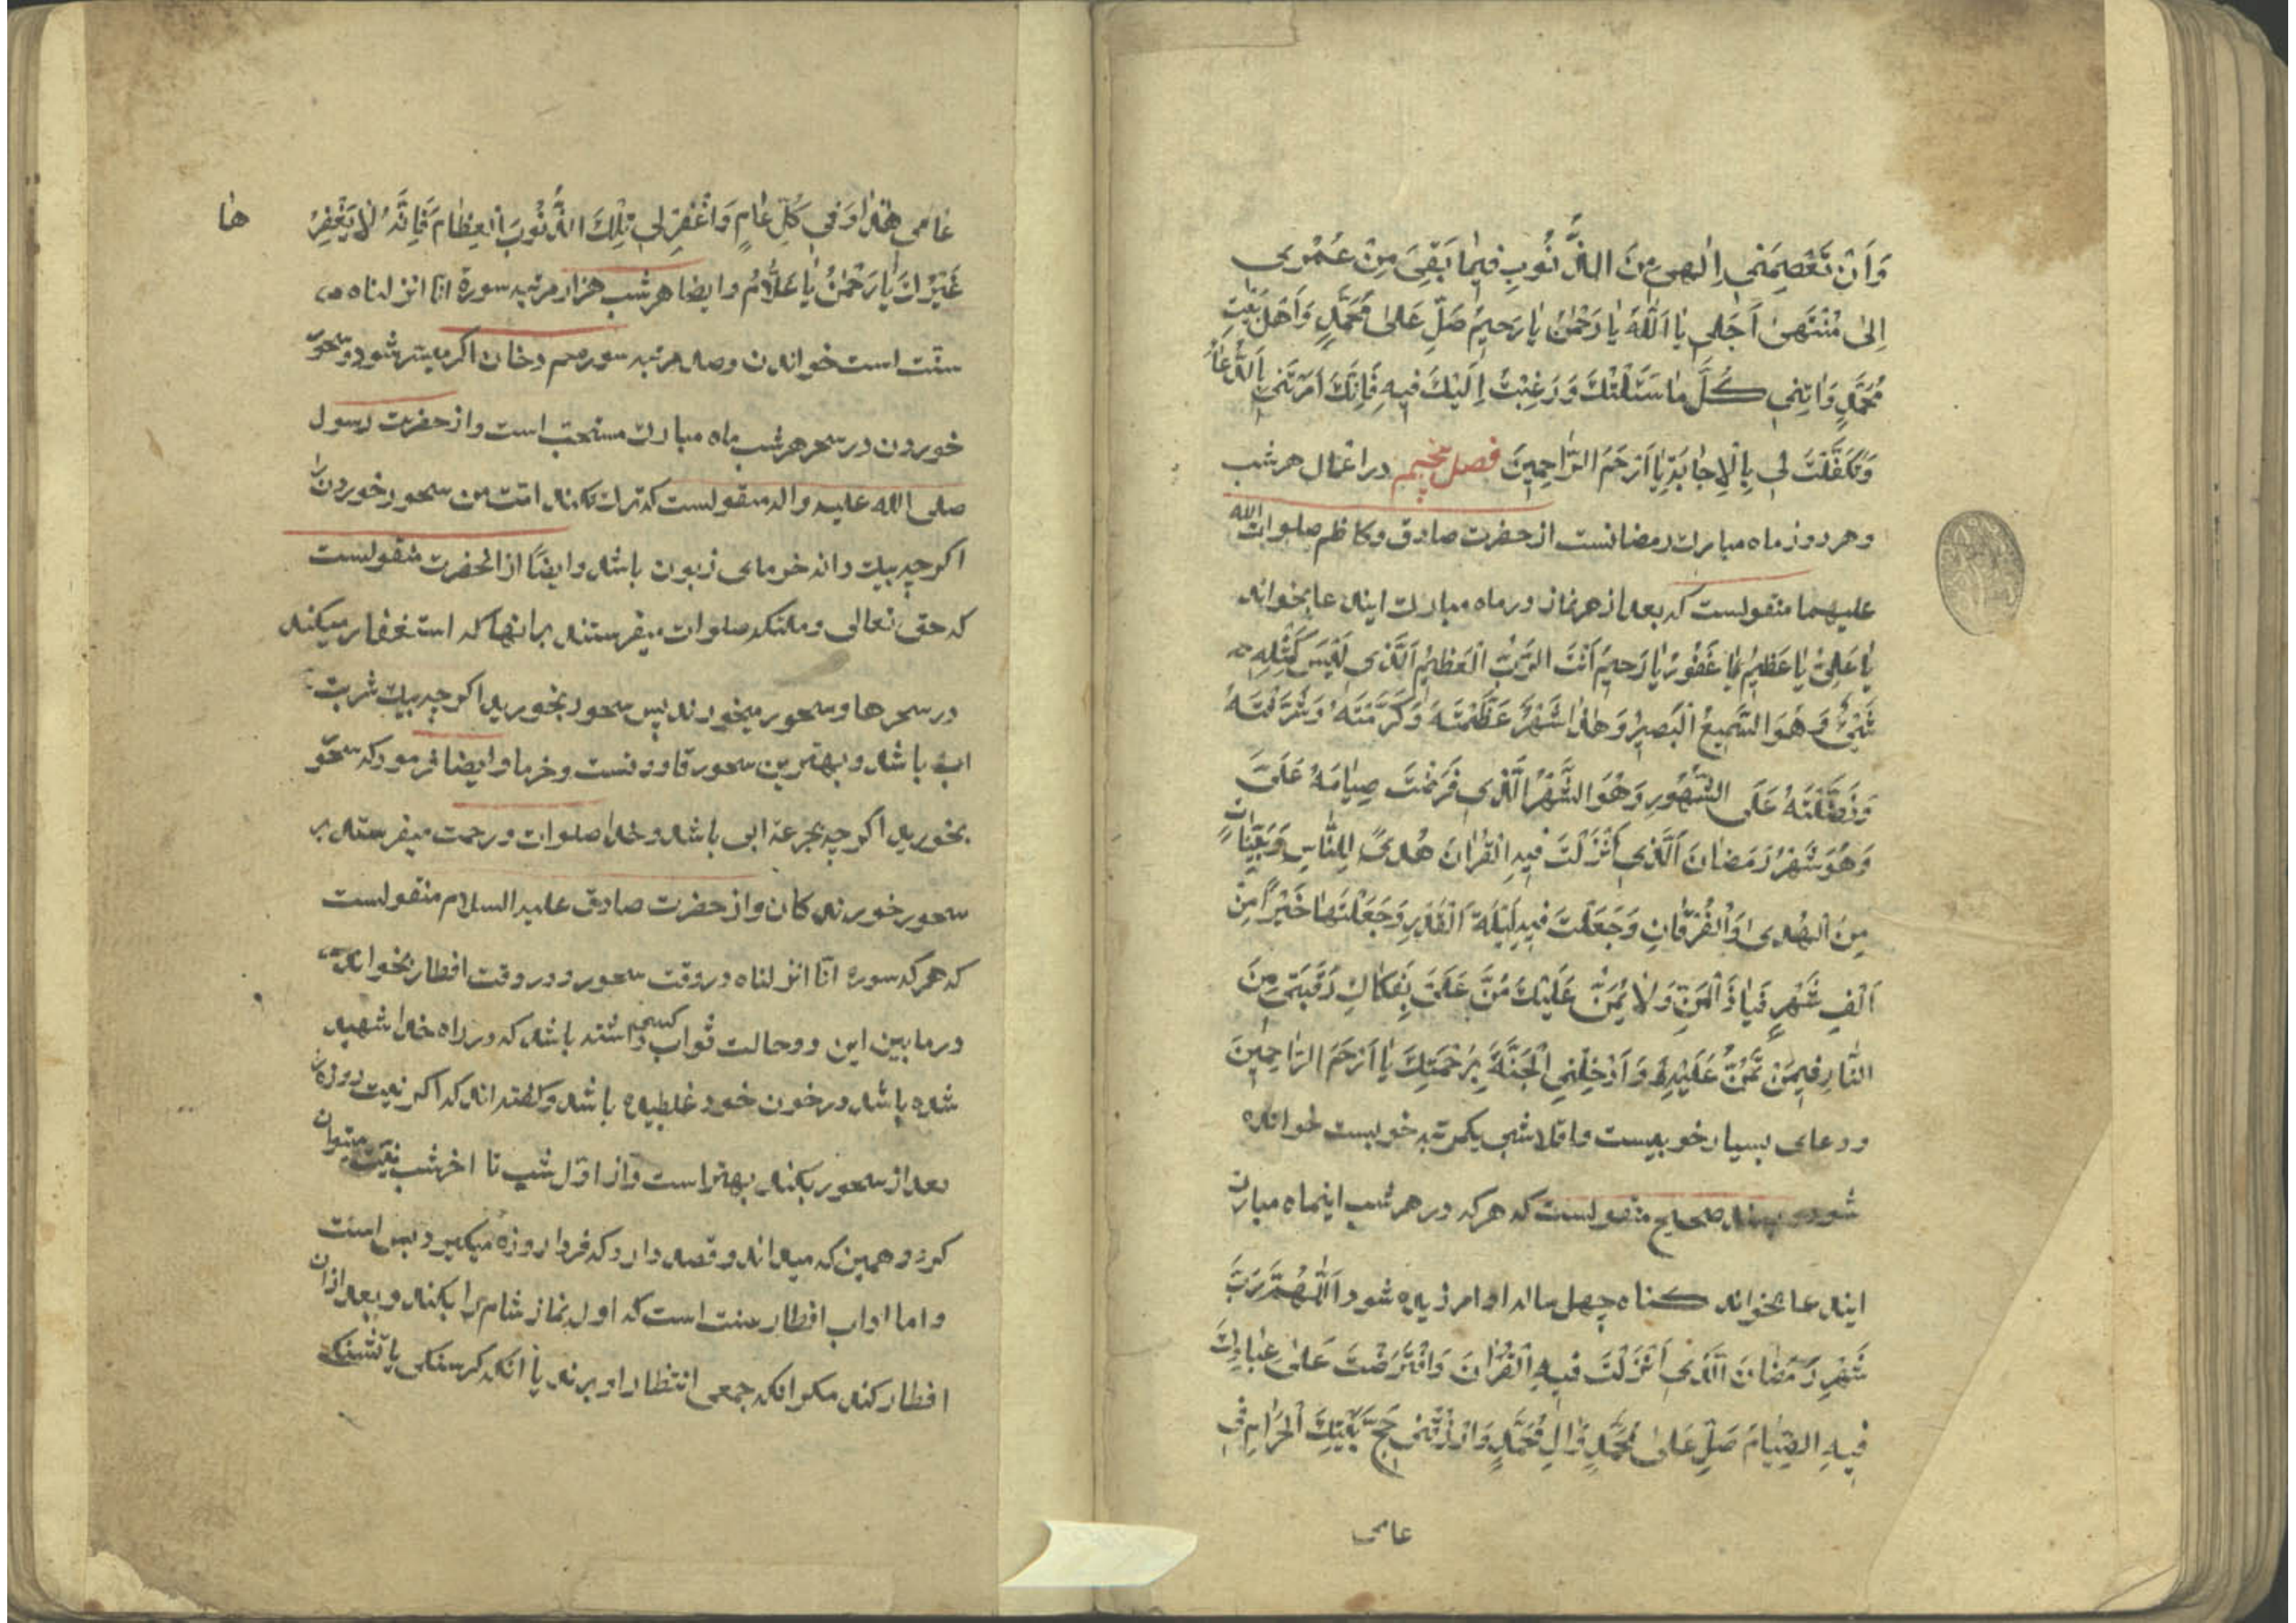 وَاَنْ تَعْصِمَنی اِلٰهی مِنَ الذُّنُوبِ فیمٰا بَقِیَ مِنْ عُمْری
اِلیٰ مُنْتَهیٰ اَجَلی یٰا اَللّٰهُ یٰا رَحْمٰنُ یٰا رَحیمُ صَلِّ عَلیٰ مُحَمَّدٍ وَاَهْلِ بَیْتِ
مُحَمَّدٍ وَاٰتِنی کُلَّ مٰا سَئَلْتُکَ وَرَغِبْتُ اِلَیْکَ فیهِ فَاِنَّکَ اَمَرْتَنی بِالدُّعٰاءِ
وَتَکَفَّلْتَ لی بِالْاِجٰابَةِ یٰا اَرْحَمَ الرّٰاحِمینَ فصل پنجم در اعمال هر شب
و هر روز ماه مبارک رمضانست از حضرت صادق و کاظم صلوات الله
علیهما منقولست که بعد از هر نماز در ماه مبارک ایندعا بخواند
یٰا عَلِیُّ یٰا عَظیمُ یٰا غَفُورُ یٰا رَحیمُ اَنْتَ الرَّبُّ الْعَظیمُ اَلَّذی لَیْسَ کَمِثْلِهِ
شَیْئٌ وَهُوَ السَّمیعُ الْبَصیرُ وَهٰذٰا شَهْرٌ عَظَّمْتَهُ وَکَرَّمْتَهُ وَشَرَّفْتَهُ
وَفَضَّلْتَهُ عَلَی الشُّهُورِ وَهُوَ الشَّهْرُ الَّذی فَرَضْتَ صِیٰامَهُ عَلَیَّ
وَهُوَ شَهْرُ رَمَضٰانَ اَلَّذی اَنْزَلْتَ فیهِ الْقُرْاٰنَ هُدیً لِلنّٰاسِ وَبَیِّنٰاتٍ
مِنَ الْهُدیٰ وَالْفُرْقٰانِ وَجَعَلْتَ فیهِ لَیْلَةَ الْقَدْرِ وَجَعَلْتَهٰا خَیْراً مِنْ
اَلْفِ شَهْرٍ فَیٰا ذَا الْمَنِّ وَلٰا یُمَنُّ عَلَیْکَ مُنَّ عَلَیَّ بِفَکٰاکِ رَقَبَتی مِنَ
النّٰارِ فیمَنْ تَمُنُّ عَلَیْهِ وَاَدْخِلْنِی الْجَنَّةَ بِرَحْمَتِکَ یٰا اَرْحَمَ الرّٰاحِمینَ
و دعای بسیار خوبیست و اقلا شبی یکمرتبه خوبست خوانده
شود و بسند صحیح منقولست که هر که در هر شب اینماه مبارک
ایندعا بخواند کناه چهل ساله او امرزیده شود اَللّٰهُمَّ رَبَّ
شَهْرِ رَمَضٰانَ اَلَّذی اَنْزَلْتَ فیهِ الْقُرْاٰنَ وَافْتَرَضْتَ عَلیٰ عِبٰادِکَ
فیهِ الصِّیٰامَ صَلِّ عَلیٰ مُحَمَّدٍ وَاٰلِ مُحَمَّدٍ وَارْزُقْنی حَجَّ بَیْتِکَ الْحَرٰامِ فی
عامی
عٰامی هٰذٰا وَفی کُلِّ عٰامٍ وَاغْفِرْ لی تِلْکَ الذُّنُوبَ الْعِظٰامَ فَاِنَّهُ لٰا یَغْفِرُ
هٰا
غَیْرُکَ یٰا رَحْمٰنُ یٰا عَلّٰامُ و ایضا هر شب هزار مرتبه سورة انّا انزلناه
سنّت است خواندن و صد مرتبه سوره حم دخان اکر میسّر شود و سحور
خوردن در سحر هر شب ماه مبارک مستحبّ است و از حضرت رسول
صلی الله علیه و اله منقولست که ترک نکنند امّت من سحور خوردن را
اکر چه بیک دانه خرمای زبون باشد و ایضًا از انحضرت منقولست
که حق تعالی و ملئکه صلوات میفرستند بر انها که استغفار میکنند
در سحرها و سحور میخورند پس سحور بخورید اکر چه بیک شربت
اب باشد و بهترین سحور قاووتست و خرما و ایضا فرمود که سحور
بخورید اکر چه بجرعه ابی باشد و خدا صلوات و رحمت میفرستد بر
سحور خورندکان و از حضرت صادق علیه السلام منقولست
که هر که سوره انّا انزلناه در وقت سحور و در وقت افطار بخواند
در ما بین این دو حالت ثواب کسی داشته باشد که در راه خدا شهید
شده باشد و در خون خود غلطیده باشد و کفته اند که اکر نیت روزه را
بعد از سحور بکند بهتر است و از اوّل شب تا اخر شب نیّت میتوان
کرد و همین که میداند و قصد دارد که فردا روزه میکیرد بس است
و اما اداب افطار سنت است که اول نماز شام را بکند و بعد از ان
افطار کند مکر انکه جمعی انتظار او برند یا انکه کرسنکی یا تشنکی